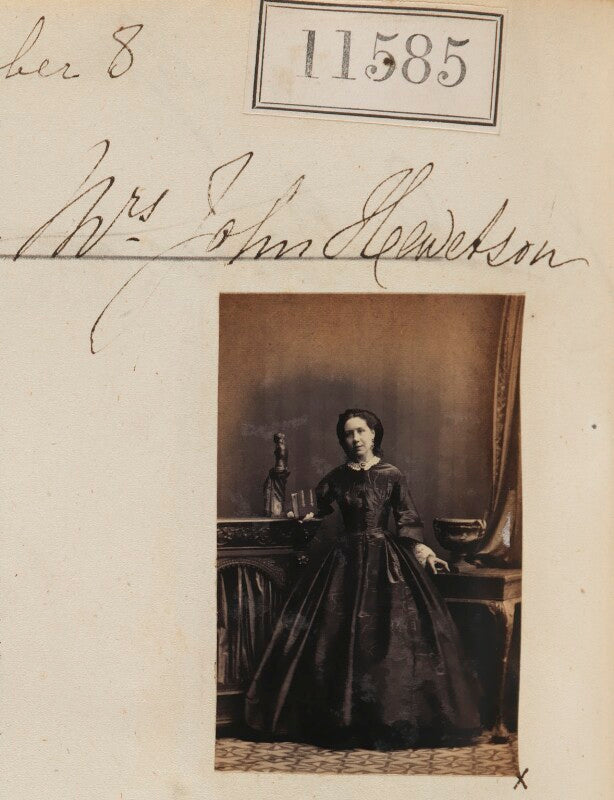 ber 8
11585
Mrs John Hewetson
x